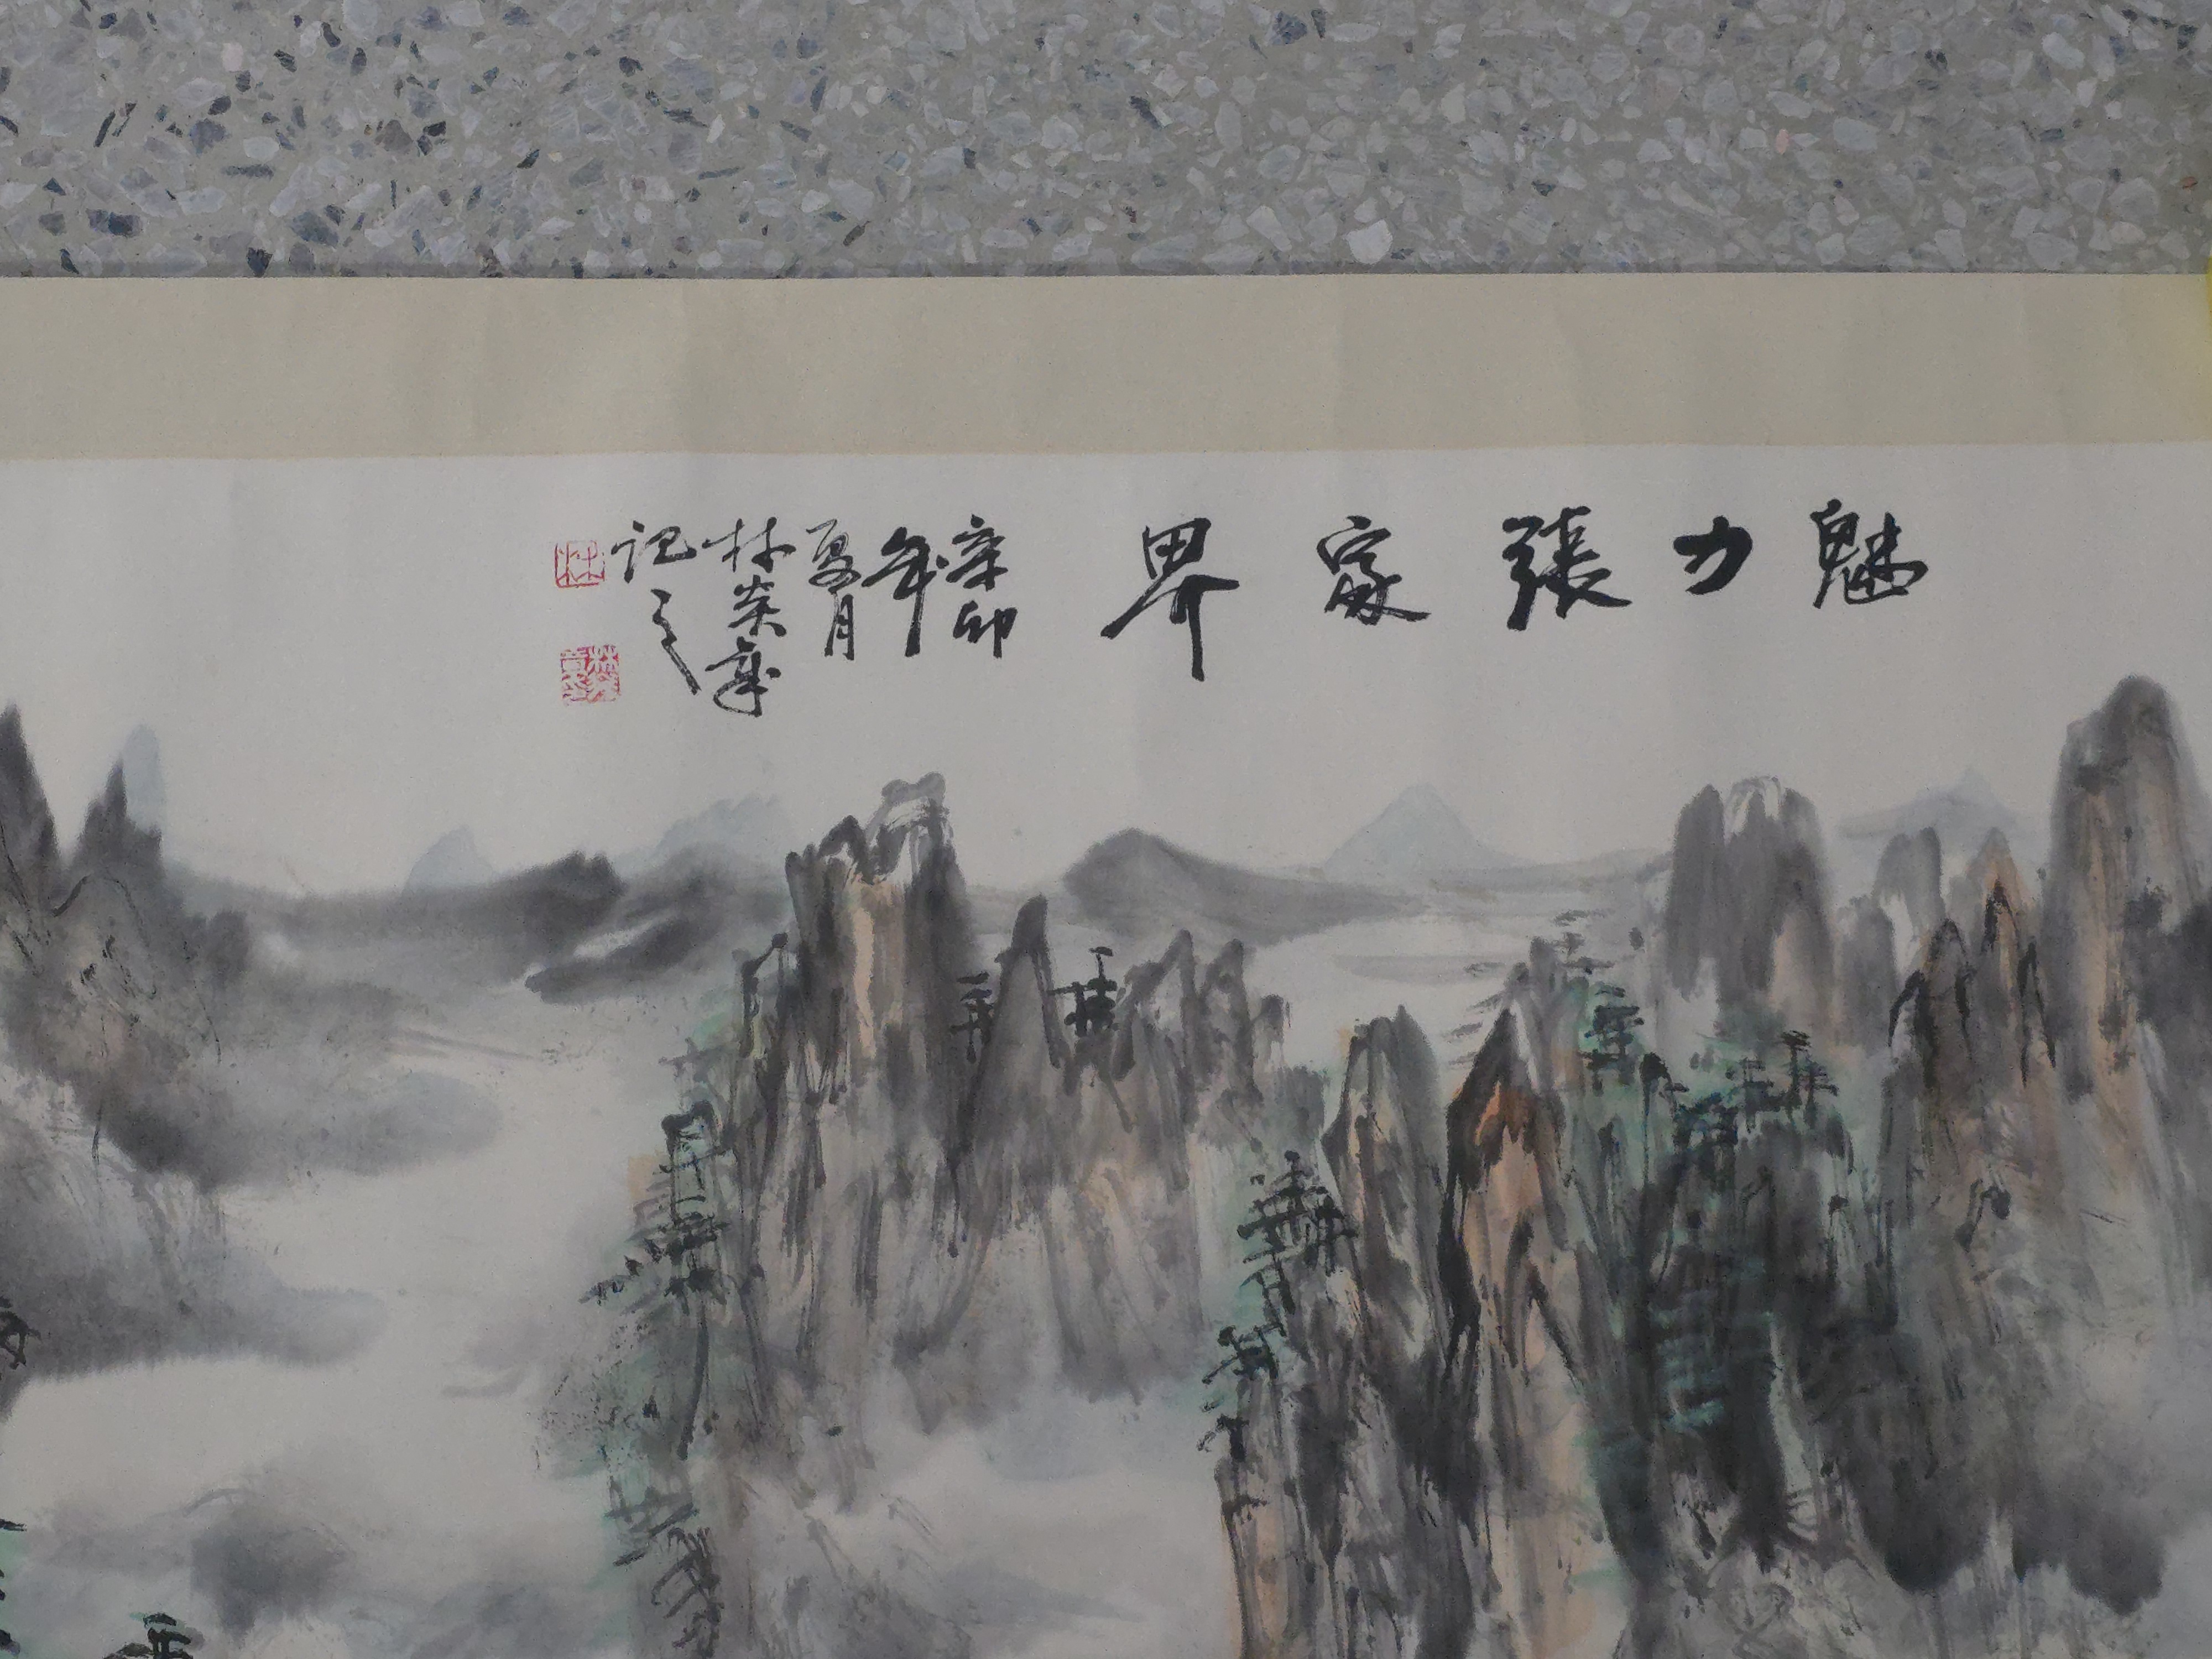 魅力張家界
辛卯
年
夏月
林榮
記之
林